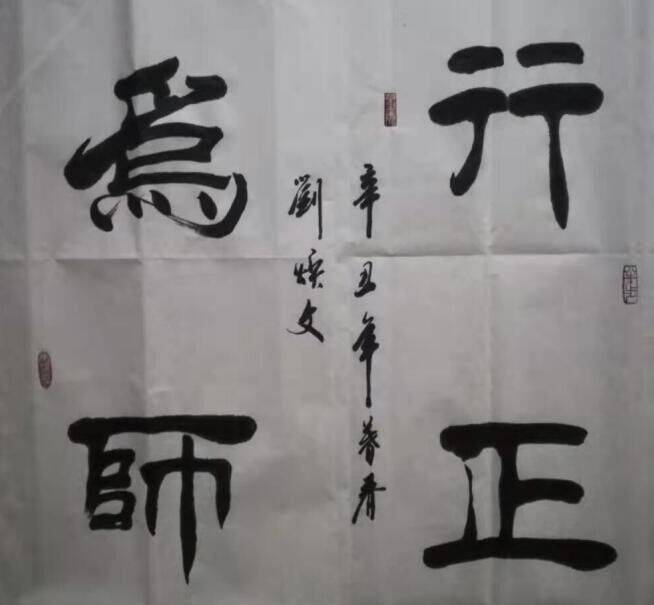 行正
為師
辛丑年暮春
劉煥文